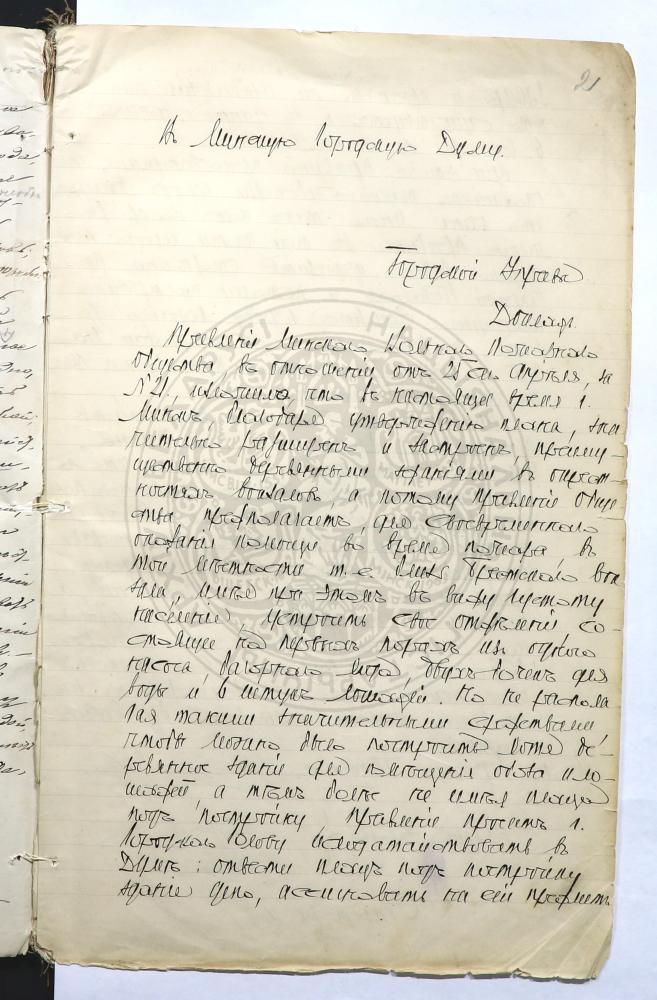 21
Въ Минскую Городскую Думу.
Городской Управы
Докладъ.
Правленіе Минскаго Вольнаго Пожарнаго
Общества, въ отношеніи отъ 25 сн. Апрѣля, за
№ 21, изложило, что въ настоящее время г.
Минскъ благодаря утвержденію плана, зна
чительно расширенъ и застроенъ, преиму-
щественно деревянными зданіями въ окрест
ностяхъ вокзаловъ, а потому Правленіе Обще
ства, предполагаетъ, для своевременнаго
оказанія помощи во время пожара, въ
той мѣстности т. е. близъ Брестскаго вок
зала, имѣя при этомъ въ виду густоту
населенія, устроить свое отдѣленіе со-
стоящее на первыхъ порахъ изъ одного
насоса, багорнаго хода, двухъ бочекъ для
воды и 6 штукъ лошадей. Но не распола
гая такими значительными средствами
чтобы можно было построить даже де-
ревянное зданіе для помѣщенія обоза и ло-
шадей, а тѣмъ болѣе не имѣя плаца
подъ постройку Правленіе проситъ г.
Городскаго Голову ходатайствовать въ
Думѣ: отвести плацъ подъ постройку
зданіе депо, ассигновать на сей предметъ